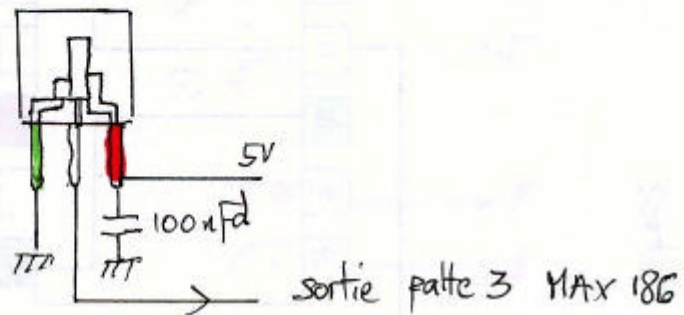 5V
100nFd
sortie patte 3 MAX 186